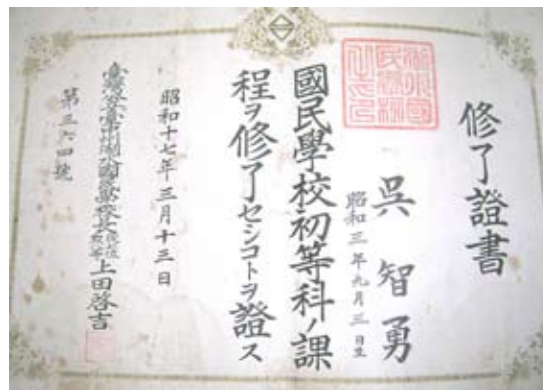 修了證書
吳智勇
昭和三年九月三日生
國民學校初等科ノ課
程ヲ修了セシコトヲ證ス
昭和十七年三月十三日
上田啓吉
第三六四號